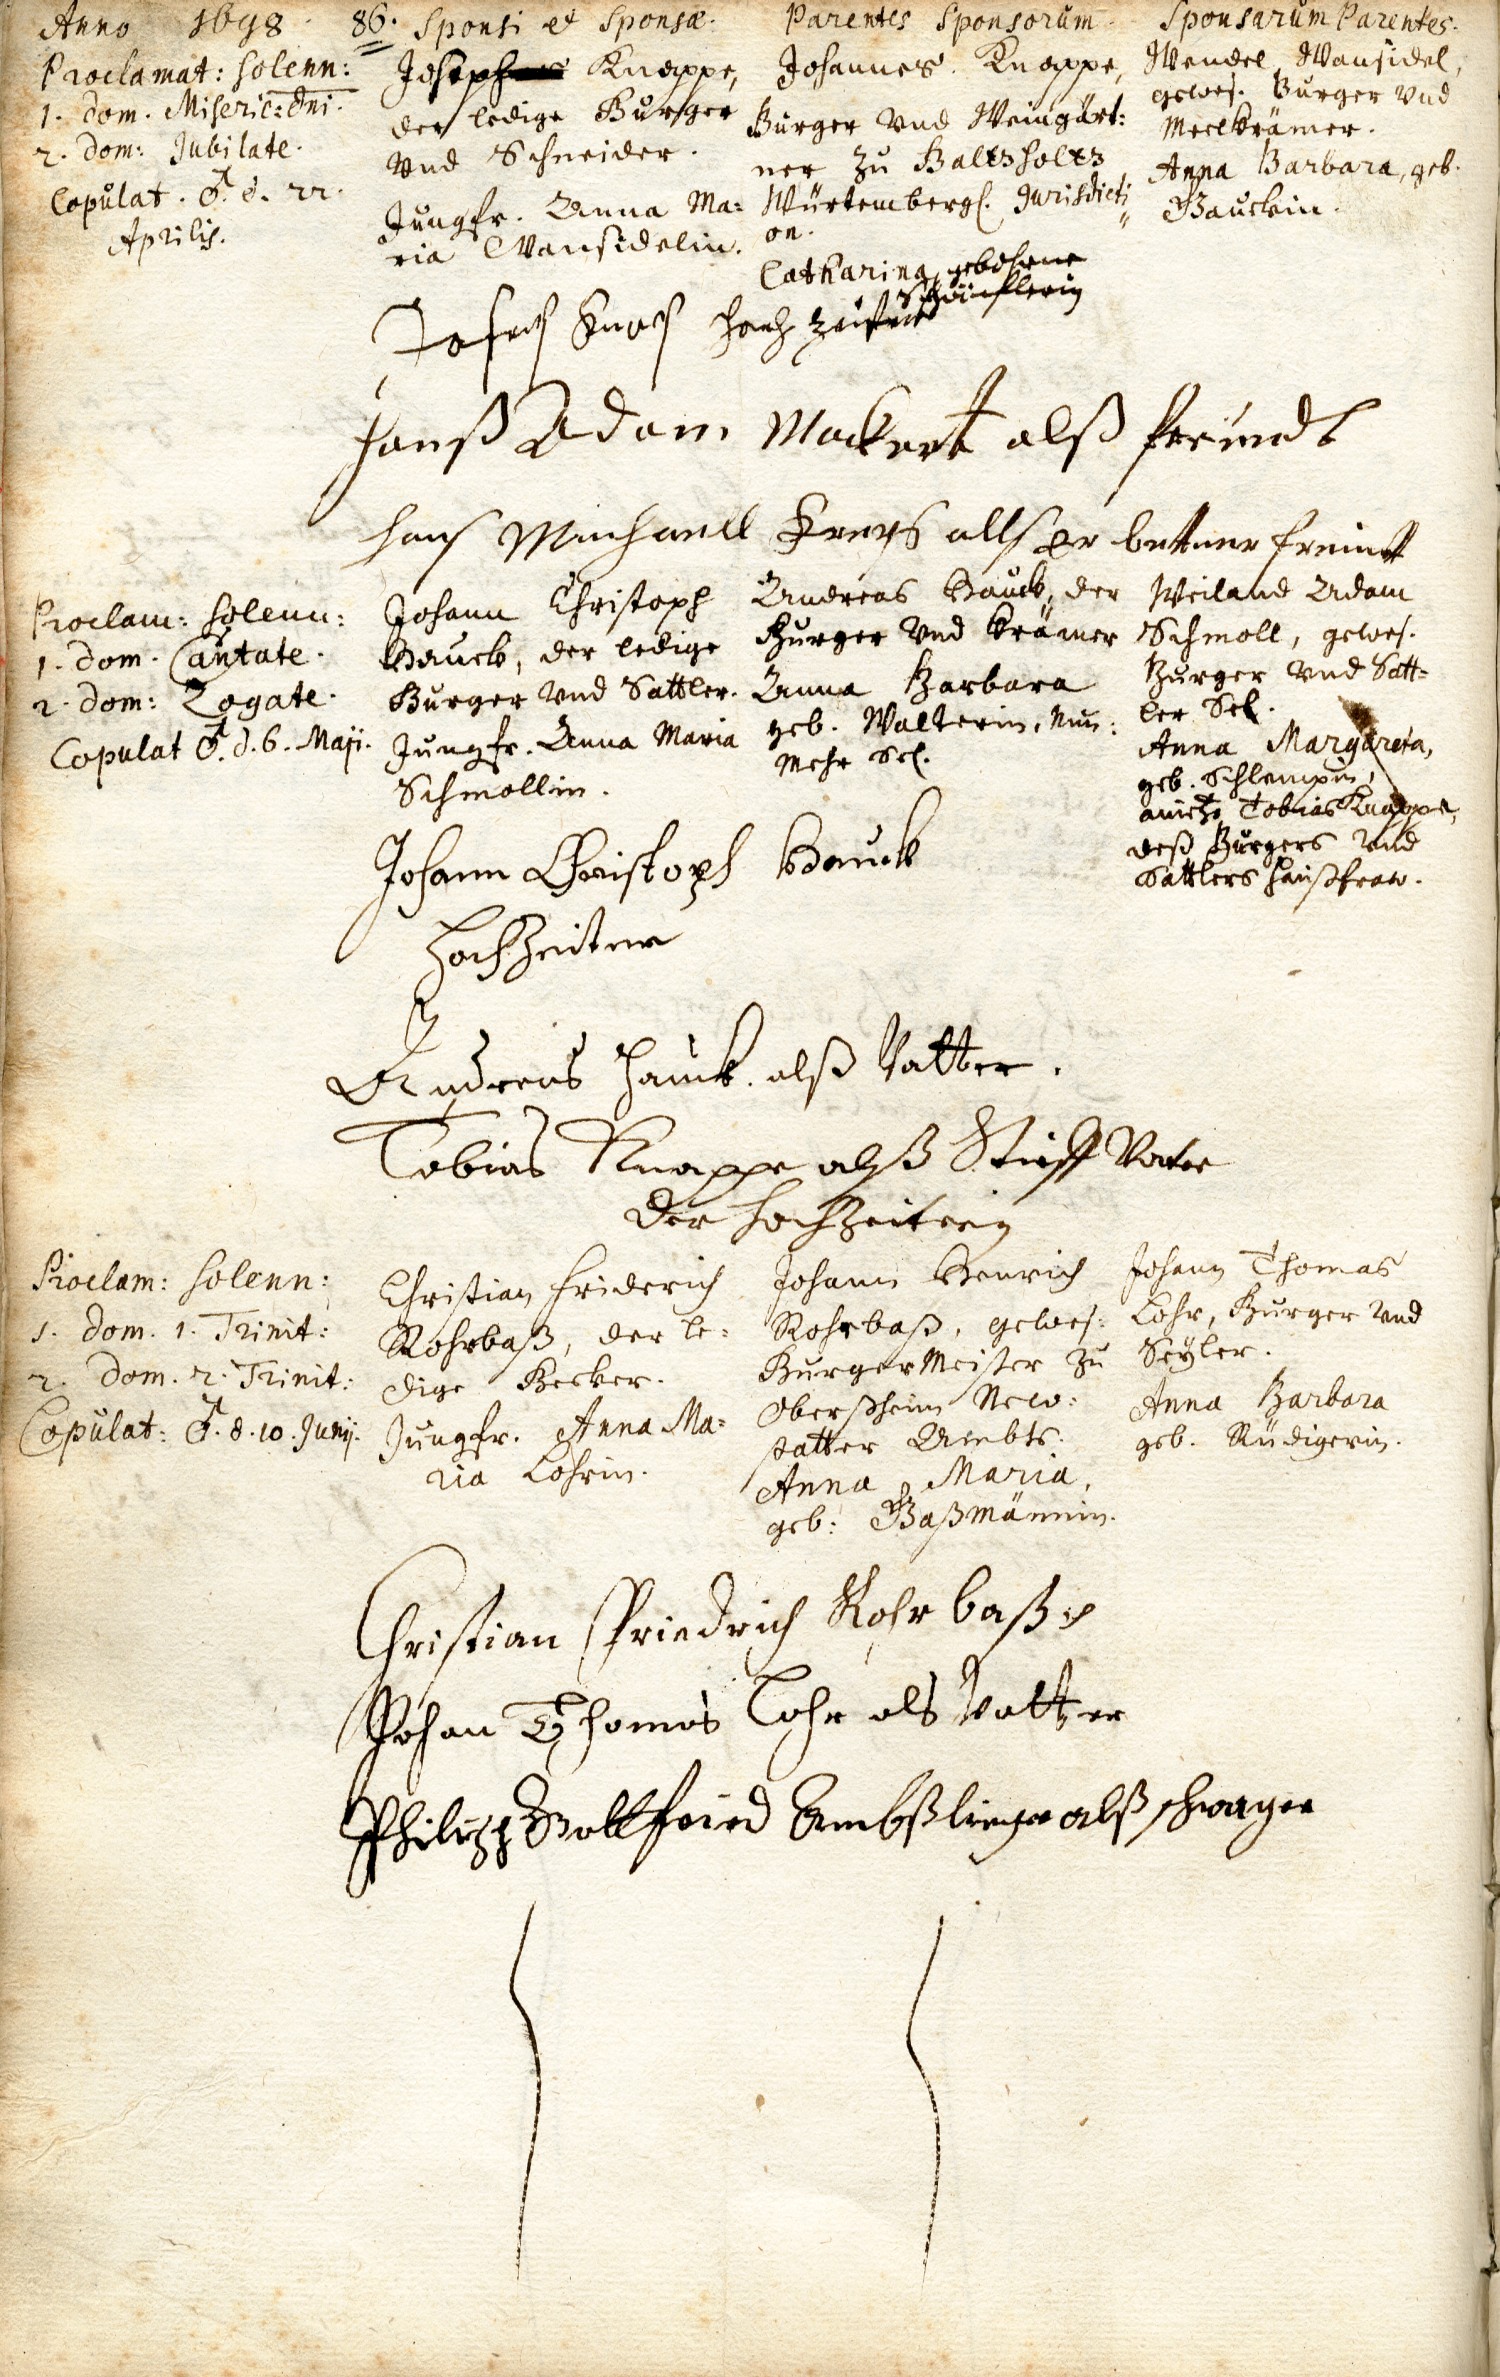 Anno 1698. 86. Sponsi et Sponsæ. Parentes Sponsorum. Sponsarum Parentes.
Proclamat: solenn:
1. Dom. Miseric: Dni.
2. Dom: Jubilate.
Copulat. ♂. d. 22.
Aprilis.
Joseph Knappe,
der ledige Burger
Vnd Schneider.
Jungfr. Anna Ma=
ria Wansidelin.
Johannes Knappe,
Burger Vnd Weingärt:
ner zu Baltzholtz
Würtembergl. Jurisdicti
on.
Catharina, gebohrne
Wendel Wansidel,
gewes. Burger Vnd
Meelkrämer.
Anna Barbara, geb.
Hauckin.
Josech Knops hoch zeiter
Hanß Adam Mackert alß freündt
hans Michaell Kreps alls er bettner freindt
Proclam: solenn:
1. Dom. Cantate.
2. Dom: Rogate.
Copulat ♂. d. 6. Maji.
Johann Christoph
Hauck, der ledige
Burger Vnd Sattler.
Jungfr. Anna Maria
Schmollin.
Andreas Hauck, der
Burger Vnd Krämer
Anna Barbara
geb. Walterin, Nun:
mehr Sel.
Weiland Adam
Schmoll, gewes.
Burger Vnd Satt=
ler Sel.
Anna Margareta,
geb. Schlempin,
anietzo Tobias Knappe,
deß Burgers Vnd
Sattlers Haußfraw.
Johann Christoph Hauck
Hochzeiter
Andreas Hauck. alß Vatter.
Tobias Knappe alß Stieff Vater
der Hochzeiterin
Proclam: solenn:
1. Dom. 1. Trinit:
2. Dom. 2. Trinit:
Copulat: ♂. d. 10. Junij.
Christian Friderich
Rohrbaß, der le=
dige Becker.
Jungfr. Anna Ma=
ria Lohrin.
Johann Henrich
Rohrbaß, gewes:
BurgerMeister zu
Oberßheim New:
statter Ambts.
Anna Maria,
geb: Baßmännin.
Johann Thomas
Lohr, Burger Vnd
Seyler.
Anna Barbara
geb. Rüdigerin.
Christian Friedrich Rohrbaß
Johan Thomas Lohr als Vatter
Philipp Gottfried Ambßlinger alß schwager